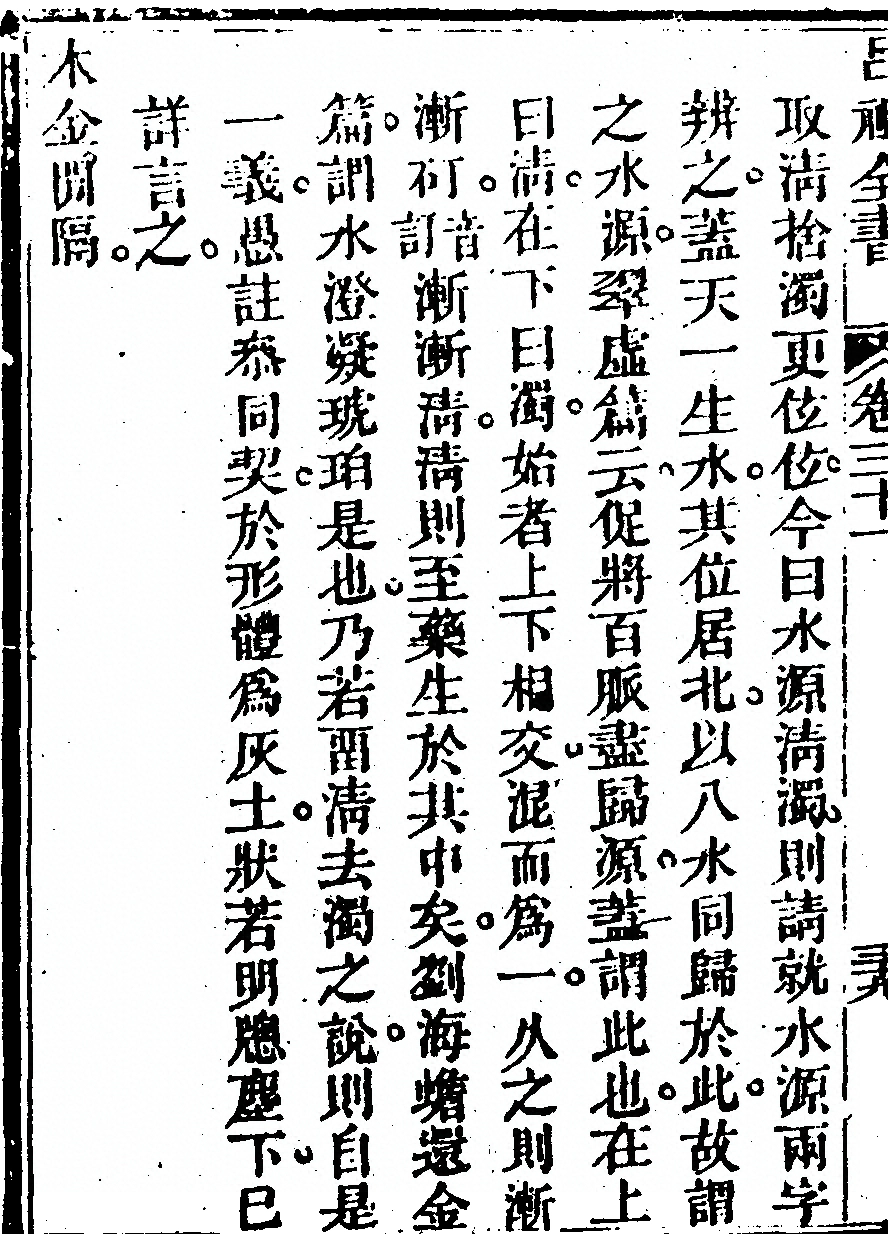 全書 卷三十一
取淸捨濁更位位今曰水源淸濁則請就水源兩字
辨之蓋天一生水其位居北以八水同歸於此故謂
之水源翠虛篇云促將百脈盡歸源蓋謂此也在上
曰淸在下曰濁始者上下相交混而爲一久之則漸
漸可訂音漸漸淸淸則至藥生於其中矣劉海蟾還金
篇謂水澄凝琥珀是也乃若畱淸去濁之說則自是
一義愚註叅同契於形體爲灰土狀若明牕塵下已
詳言之
木金閒隔